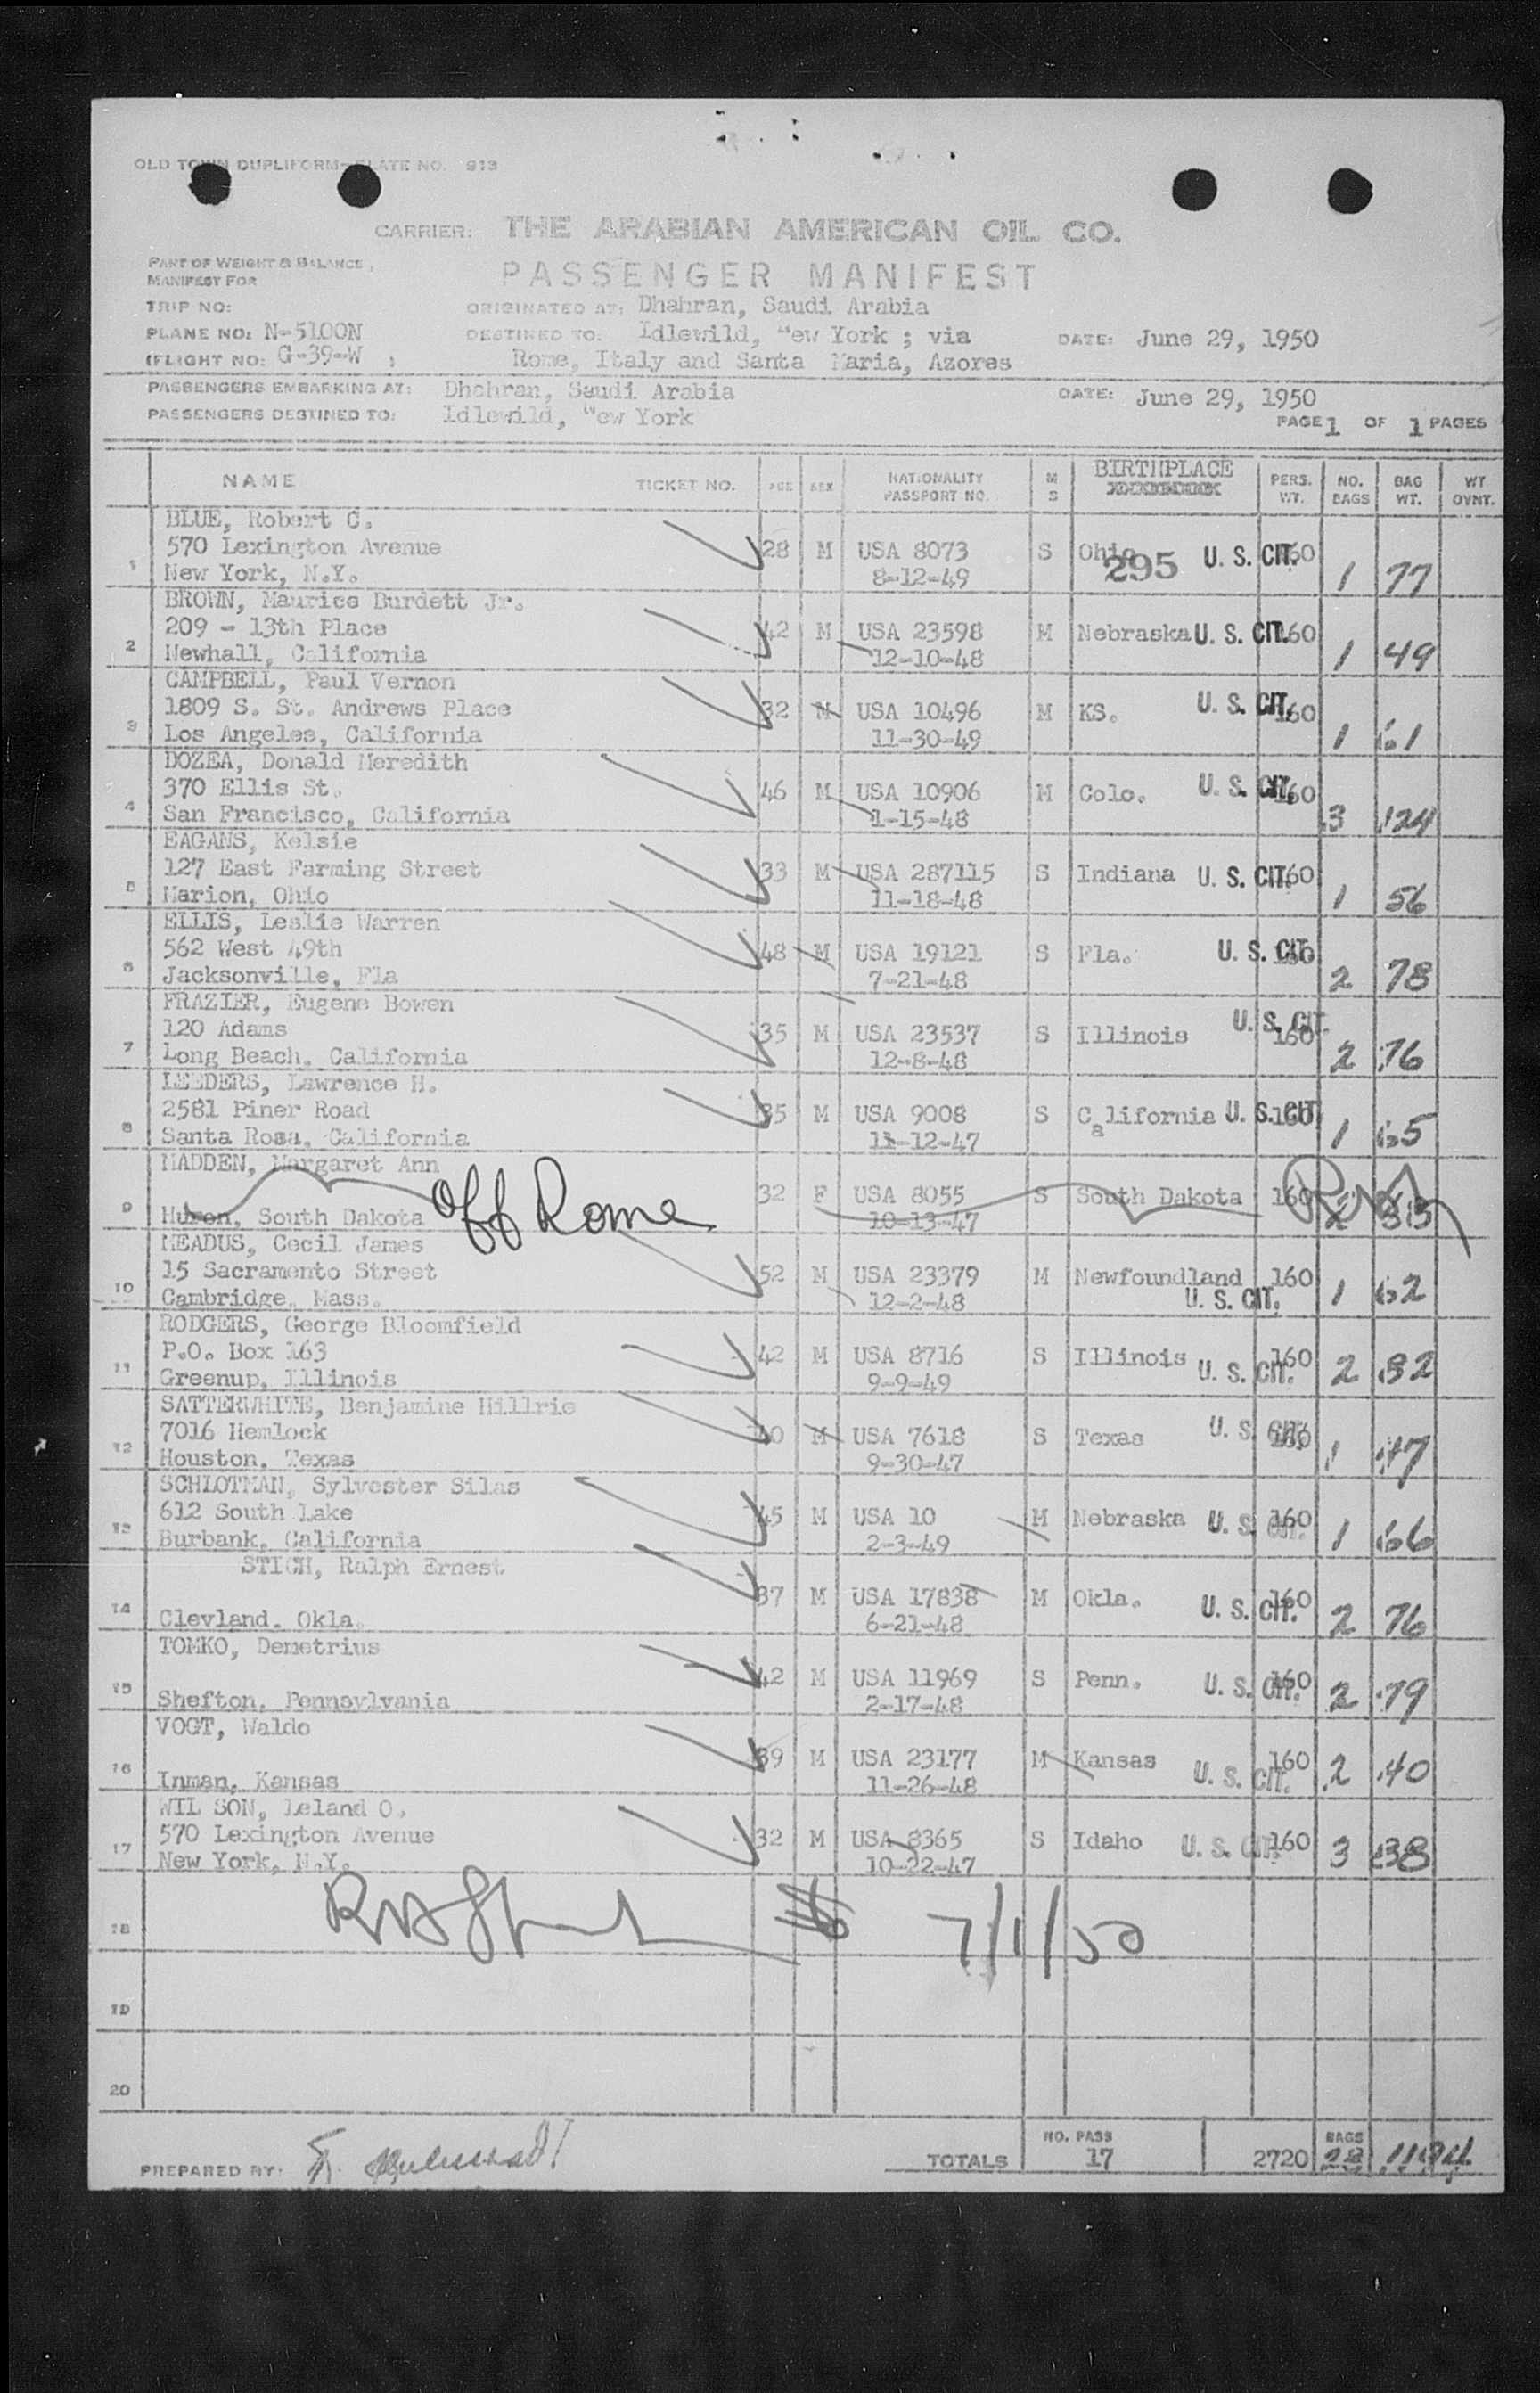 OLD TOWN DUPLIFORM—PLATE NO. 913
CARRIER: THE ARABIAN AMERICAN OIL CO.
PART OF WEIGHT & BALANCE,
MANIFEST FOR
PASSENGER MANIFEST
TRIP NO: ORIGINATED AT: Dhahran, Saudi Arabia
PLANE NO: N-5100N DESTINED TO: Idlewild, New York ; via DATE: June 29, 1950
(FLIGHT NO: G-39-W ; Rome, Italy and Santa Maria, Azores
PASSENGERS EMBARKING AT: Dhahran, Saudi Arabia DATE: June 29, 1950
PASSENGERS DESTINED TO: Idlewild, New York
PAGE 1 OF 1 PAGES
NAME TICKET NO. AGE SEX NATIONALITY PASSPORT NO. M S BIRTHPLACE PERS. WT. NO. BAGS BAG WT. WT OVNT.
BLUE, Robert C.
1 570 Lexington Avenue 28 M USA 8073 S Ohio 295 U. S. CIT. 160 1 77
New York, N.Y. 8-12-49
BROWN, Maurice Burdett Jr.
2 209 - 13th Place 42 M USA 23598 M Nebraska U. S. CIT. 160 1 49
Newhall, California 12-10-48
CAMPBELL, Paul Vernon
3 1809 S. St. Andrews Place 32 M USA 10496 M KS. U. S. CIT. 160 1 61
Los Angeles, California 11-30-49
DOZEA, Donald Meredith
4 370 Ellis St. 46 M USA 10906 M Colo. U. S. CIT. 160 3 124
San Francisco, California 1-15-48
EAGANS, Kelsie
5 127 East Farming Street 33 M USA 287115 S Indiana U. S. CIT. 160 1 56
Marion, Ohio 11-18-48
ELLIS, Leslie Warren
6 562 West 49th 48 M USA 19121 S Fla. U. S. CIT. 160 2 78
Jacksonville, Fla 7-21-48
FRAZIER, Eugene Bowen
7 120 Adams 35 M USA 23537 S Illinois U. S. CIT. 160 2 76
Long Beach, California 12-8-48
LEEDERS, Lawrence H.
8 2581 Piner Road 35 M USA 9008 S California U. S. CIT. 160 1 65
Santa Rosa, California 11-12-47
MADDEN, Margaret Ann
9 32 F USA 8055 S South Dakota 160 2
Huron, South Dakota Off Rome 10-13-47
MEADUS, Cecil James
10 15 Sacramento Street 52 M USA 23379 M Newfoundland 160 1 62
Cambridge, Mass. 12-2-48 U. S. CIT.
RODGERS, George Bloomfield
11 P.O. Box 163 42 M USA 8716 S Illinois U. S. CIT. 160 2 82
Greenup, Illinois 9-9-49
SATTERWHITE, Benjamine Hillrie
12 7016 Hemlock 40 M USA 7618 S Texas U. S. CIT. 160 1 47
Houston, Texas 9-30-47
SCHLOTMAN, Sylvester Silas
13 612 South Lake 45 M USA 10 M Nebraska U. S. CIT. 160 1 66
Burbank, California 2-3-49
STICH, Ralph Ernest
14 37 M USA 17838 M Okla. U. S. CIT. 160 2 76
Clevland, Okla. 6-21-48
TOMKO, Demetrius
15 42 M USA 11969 S Penn. U. S. CIT. 160 2 79
Shefton, Pennsylvania 2-17-48
VOGT, Waldo
16 39 M USA 23177 M Kansas U. S. CIT. 160 2 40
Inman, Kansas 11-26-48
WIL SON, Leland O.
17 570 Lexington Avenue 32 M USA 8365 S Idaho U. S. CIT. 160 3 38
New York, N.Y. 10-22-47
18 7/1/50
19
20
PREPARED BY: TOTALS NO. PASS 17 2720 BAGS 28 1194